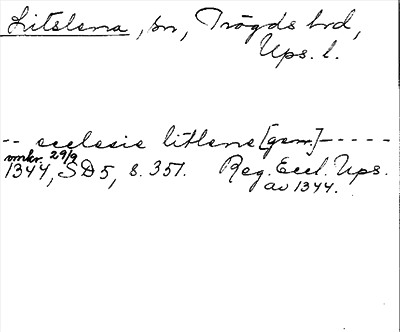 Litslena, sn, Trögds hrd,
Ups. l.
-- ecclesie litlene [gam.] -----
omkr. 29/9
1344, SD5, s. 351. Reg. Eccl. Ups.
av 1344.